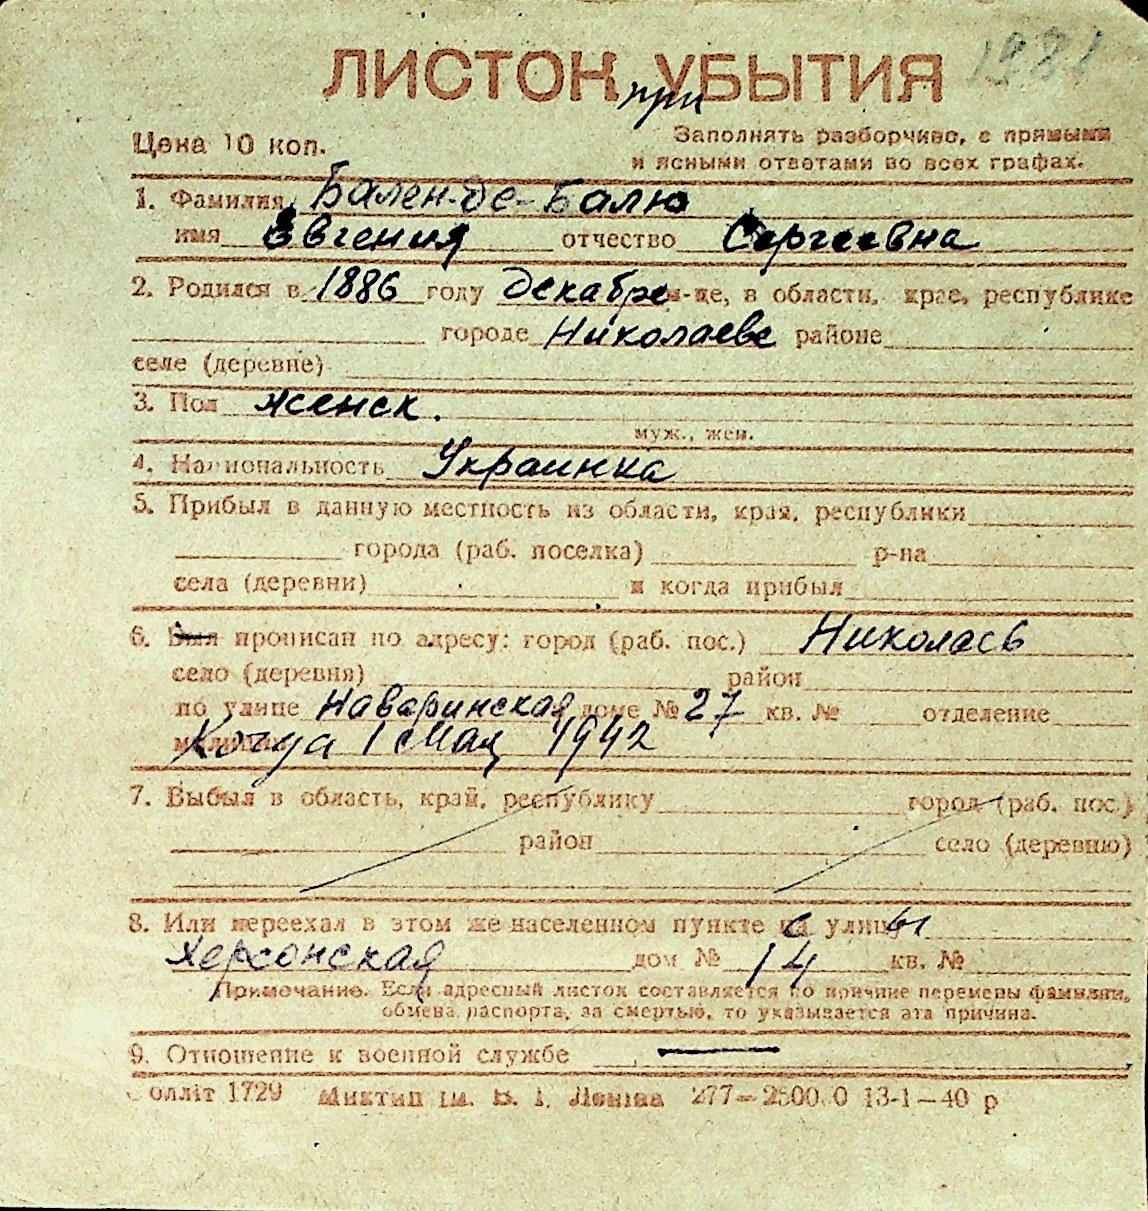 1881
ЛИСТОК при УБЫТИЯ
Цена 10 коп.
Заполнять разборчиво, с прямыми
и ясными ответами во всех графах.
1. Фамилия Бален-де-Балю
имя Евгения отчество Сергеевна
2. Родился в 1886 году декабре м-це, в области, крае, республике
городе Николаеве районе
селе (деревне)
3. Пол женск.
муж., жен.
4. Национальность Украинка
5. Прибыл в данную местность из области, края, республики
города (раб. поселка) р-на
села (деревни) и когда прибыл
6. Был прописан по адресу: город (раб. пос.) Николаев
село (деревня) район
по улице Наваринская доме № 27 кв. № отделение
милиции Когда 1 Мая 1942
7. Выбыл в область, край, республику город (раб. пос.)
район село (деревню)
8. Или переехал в этом же населенном пункте с улицы
Херсонская дом № 14 кв. №
Примечание. Если адресный листок составляется по причине перемены фамилии,
обмена паспорта, за смертью, то указывается эта причина.
9. Отношение к военной службе —
оллiт 1729 Миктип iм. В. I. Ленiна 277—25000 13-1—40 р